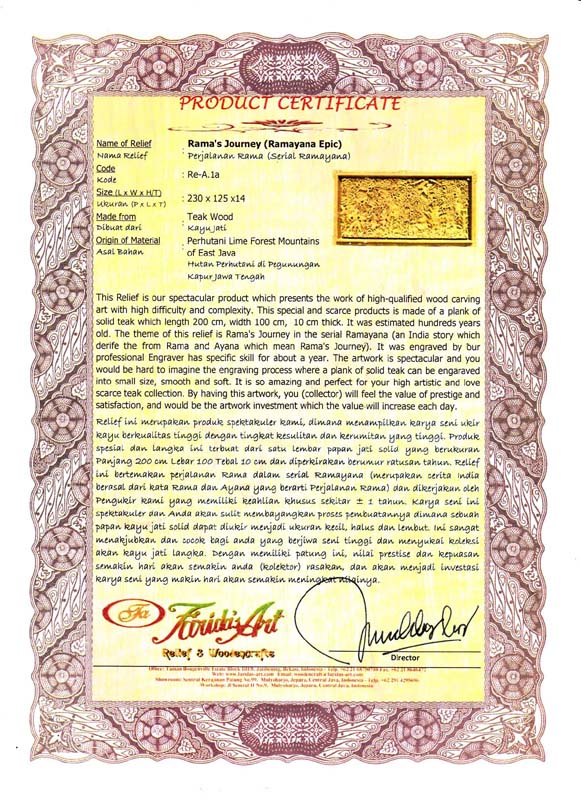 PRODUCT CERTIFICATE
Name of Relief : Rama's Journey (Ramayana Epic)
Nama Relief Perjalanan Rama (Serial Ramayana)
Code
Kode : Re-A.1a
Size (L x W x H/T)
Ukuran (P x L x T) : 230 x 125 x14
Made from : Teak Wood
Dibuat dari Kayu Jati
Origin of Material : Perhutani Lime Forest Mountains
Asal Bahan of East Java
Hutan Perhutani di Pegunungan
Kapur Jawa Tengah
This Relief is our spectacular product which presents the work of high-qualified wood carving
art with high difficulty and complexity. This special and scarce products is made of a plank of
solid teak which length 200 cm, width 100 cm, 10 cm thick. It was estimated hundreds years
old. The theme of this relief is Rama's Journey in the serial Ramayana (an India story which
derife the from Rama and Ayana which mean Rama's Journey). It was engraved by our
professional Engraver has specific skill for about a year. The artwork is spectacular and you
would be hard to imagine the engraving process where a plank of solid teak can be engaraved
into small size, smooth and soft. It is so amazing and perfect for your high artistic and love
scarce teak collection. By having this artwork, you (collector) will feel the value of prestige and
satisfaction, and would be the artwork investment which the value will increase each day.
Relief ini merupakan produk spektakuler kami, dimana menampilkan karya seni ukir
kayu berkualitas tinggi dengan tingkat kesulitan dan kerumitan yang tinggi. Produk
spesial dan langka ini terbuat dari satu lembar papan jati solid yang berukuran
Panjang 200 cm Lebar 100 Tebal 10 cm dan diperkirakan berumur ratusan tahun. Relief
ini bertemakan perjalanan Rama dalam serial Ramayana (merupakan cerita India
berasal dari kata Rama dan Ayana yang berarti Perjalanan Rama) dan dikerjakan oleh
Pengukir kami yang memiliki keahlian khusus sekitar ± 1 tahun. Karya seni ini
spektakuler dan Anda akan sulit membayangkan proses pembuatannya dimana sebuah
papan kayu jati solid dapat diukir menjadi ukuran kecil, halus dan lembut. Ini sangat
menakjubkan dan cocok bagi anda yang berjiwa seni tinggi dan menyukai koleksi
akan kayu jati langka. Dengan memiliki patung ini, nilai prestise dan kepuasan
semakin hari akan semakin anda (kolektor) rasakan, dan akan menjadi investasi
karya seni yang makin hari akan semakin meningkat nilainya.
Fa Farida's Art
Relief & Woodencrafts
Director
Web: www.faridas-art.com Email: woodencraft@faridas-art.com
Showroom: Sentral Kerajinan Patung No.99, Mulyoharjo, Jepara, Central Java, Indonesia
Workshop: Mulyoharjo, Jepara, Central Java, Indonesia